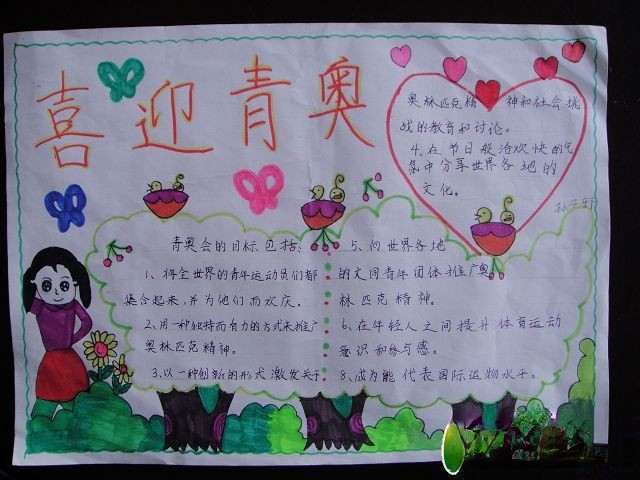 喜迎青奥
青奥会的目标包括:
1、将全世界的青年运动员们都
集合起来,并为他们而欢庆。
2、用一种独特而有力的方式来推广
奥林匹克精神。
3、以一种创新的形式激发关于
奥林匹克精 神和社会挑
战的教育和讨论。
4、在节日般洽欢快的气
氛中分享世界各地的
文化。
5、向世界各地
的文同青年团体推广奥
林匹克精神。
6、在年轻人之间提升体育运动
意识和参与感。
8、成为能代表国际运物水平。